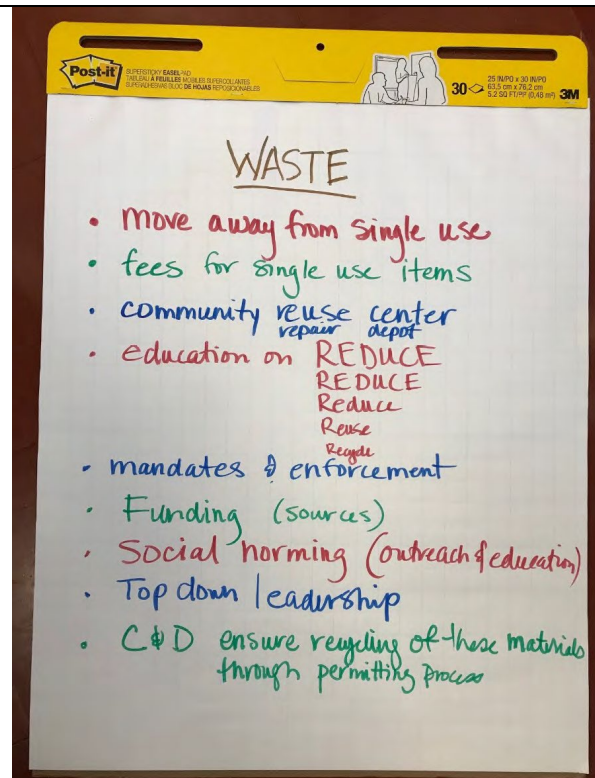 Post-it
SUPERSTICKY EASEL PAD
TABLEAU À FEUILLES MOBILES SUPERCOLLANTES
SUPERADHESIVAS BLOC DE HOJAS REPOSICIONABLES
30
25 IN/PO x 30 IN/PO
63,5 cm x 76,2 cm
5.2 SQ FT/PI² (0,48 m²)
3M
WASTE
• move away from single use
• fees for single use items
• community reuse center
repair depot
• education on REDUCE
REDUCE
Reduce
Reuse
Recycle
• mandates & enforcement
• Funding (sources)
• Social norming (outreach & education)
• Top down leadership
• C & D ensure recycling of these materials
through permitting process